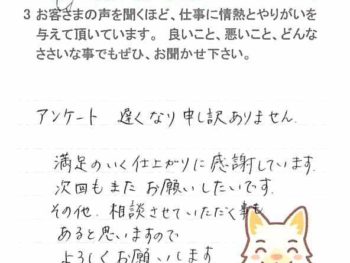 3 お客さまの声を聞くほど、仕事に情熱とやりがいを
与えて頂いています。 良いこと、悪いこと、どんな
ささいな事でもぜひ、お聞かせ下さい。
アンケート 遅くなり申し訳ありません.
満足のいく仕上がりに感謝しています.
次回もまた お願いしたいです.
その他. 相談させていただく事も
あると思いますので
よろしくお願いします